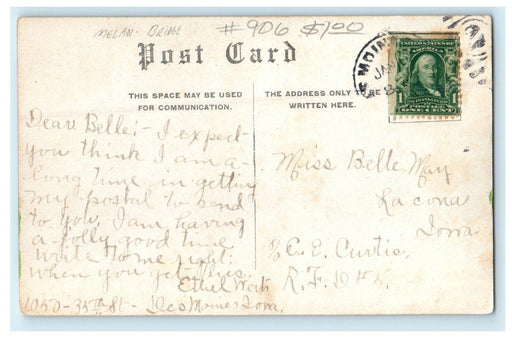 MELAN. BRIDGE
# 906 $1.00
Post Card
THIS SPACE MAY BE USED
FOR COMMUNICATION.
THE ADDRESS ONLY TO BE
WRITTEN HERE.
MOIN
JA
UNITED STATES OF
AMERICA
1 1
POSTAGE
ONE CENT
Dear Belle:- I expect
you think I am a
long time in getting
my postal to send
to you. I am having
a jolly good time
write to me right
when you get this.
Ethel
1050-35th St- Des Moines Iowa.
Miss Belle May
Lacona
Iowa
% C. E. Curtis,
R. F. D #5.